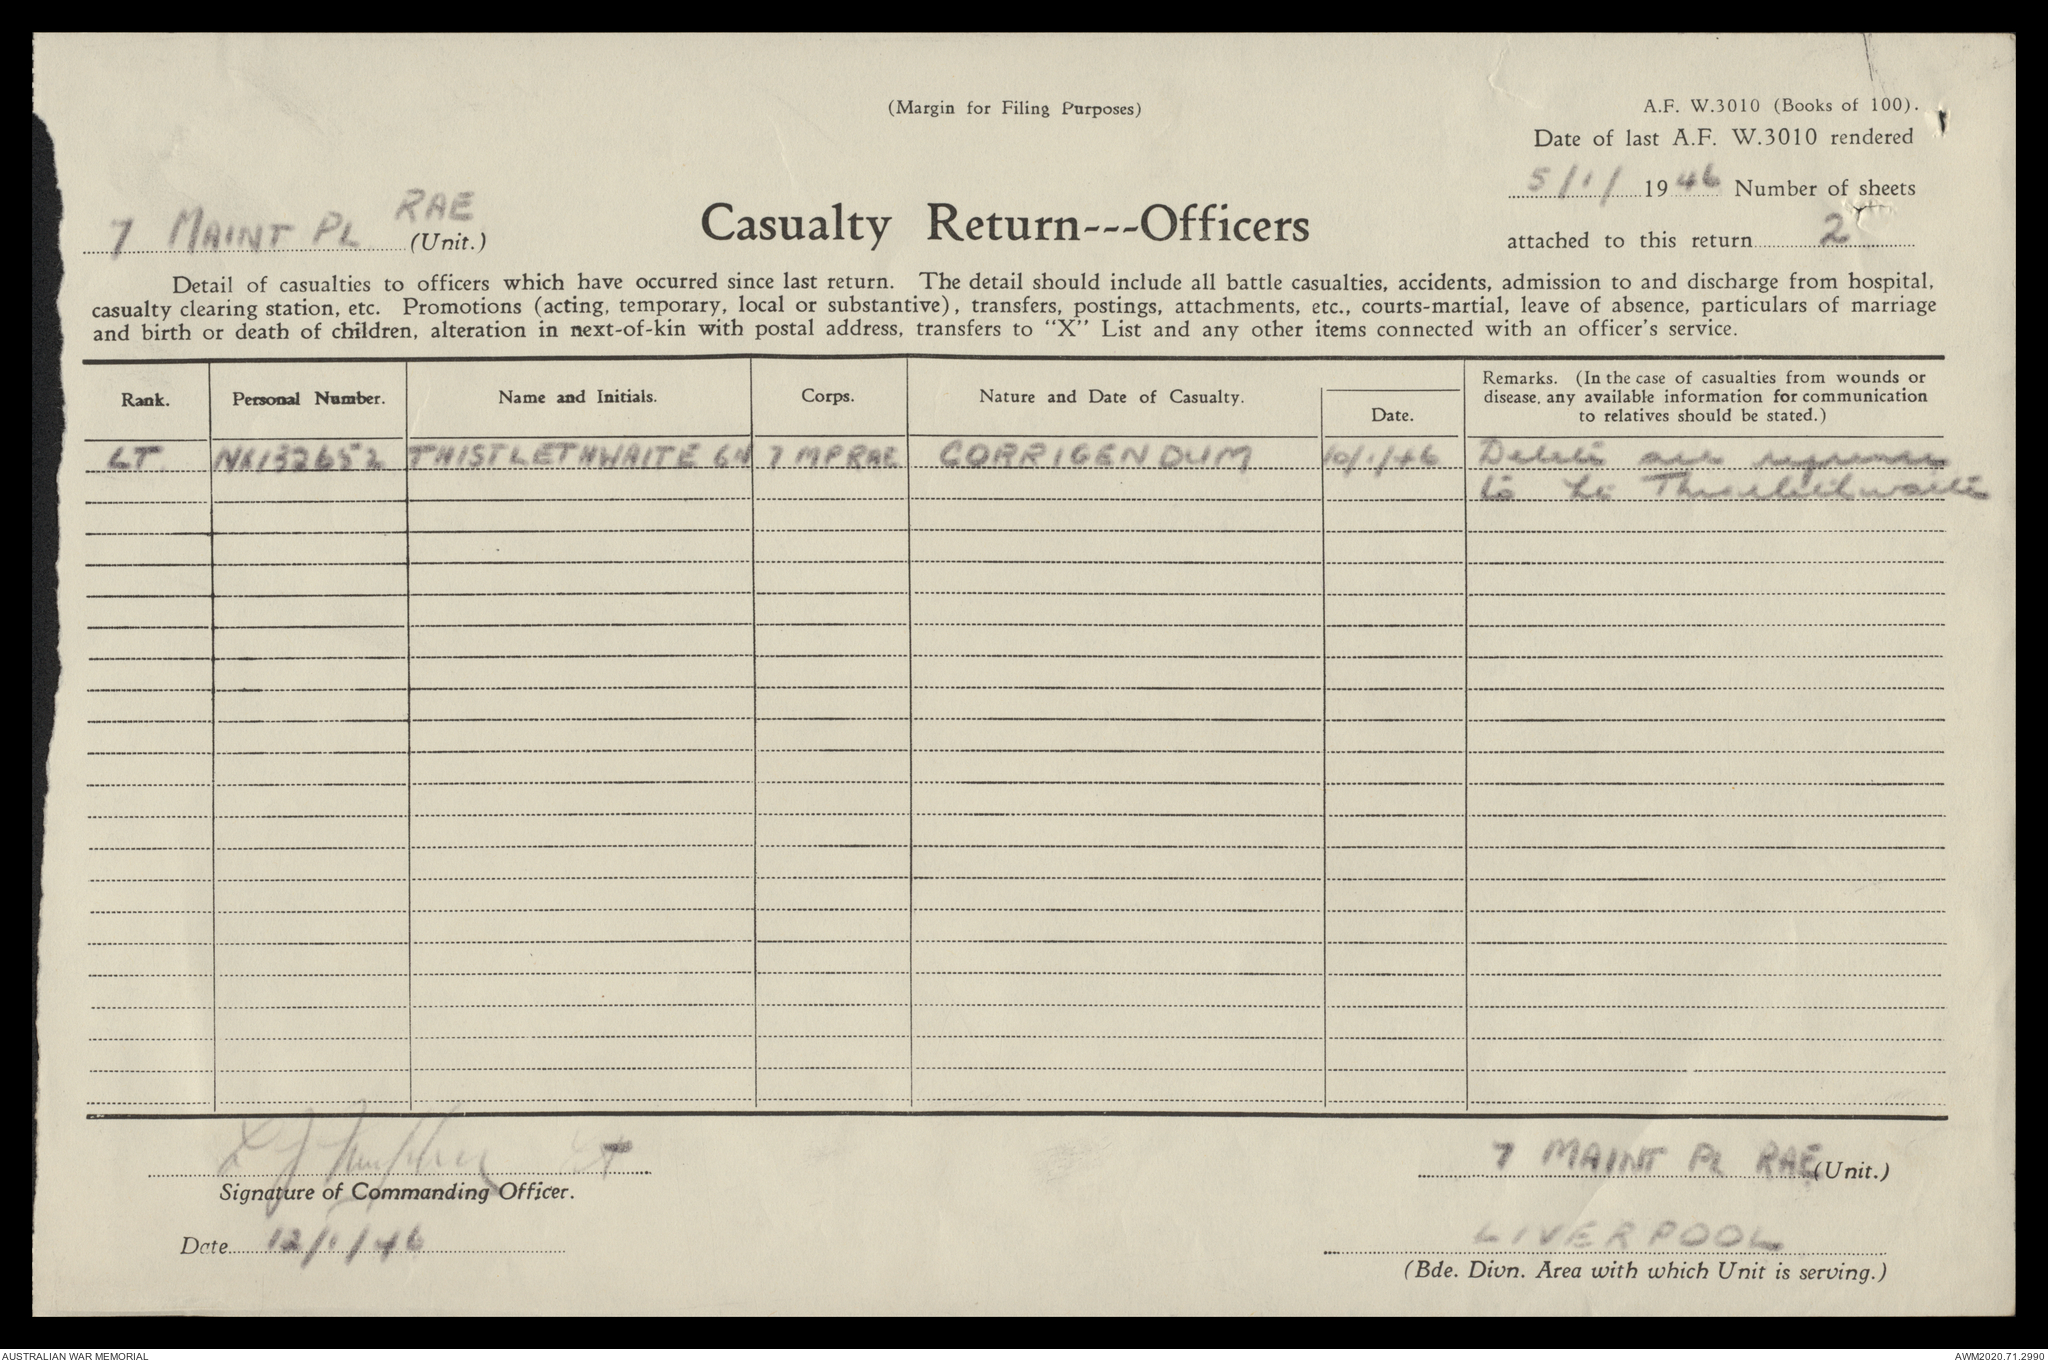 (Margin for Filing Purposes)
A.F. W.3010 (Books of 100).
Date of last A.F. W.3010 rendered
5/1/ 1946 Number of sheets
attached to this return 2
7 MAINT PL RAE (Unit.)
Casualty Return---Officers
Detail of casualties to officers which have occurred since last return. The detail should include all battle casualties, accidents, admission to and discharge from hospital,
casualty clearing station, etc. Promotions (acting, temporary, local or substantive), transfers, postings, attachments, etc., courts-martial, leave of absence, particulars of marriage
and birth or death of children, alteration in next-of-kin with postal address, transfers to "X" List and any other items connected with an officer's service.
Rank. Personal Number. Name and Initials. Corps. Nature and Date of Casualty. Date. Remarks. (In the case of casualties from wounds or
disease, any available information for communication
to relatives should be stated.)
LT. NX132652 THISTLETHWAITE GN 7 MPRAE CORRIGENDUM 10/1/46 Delete all reference
to Lt Thistlethwaite
Lt
Signature of Commanding Officer.
Date 12/1/46
7 MAINT PL RAE (Unit.)
LIVERPOOL
(Bde. Divn. Area with which Unit is serving.)
AUSTRALIAN WAR MEMORIAL
AWM2020.71.2990